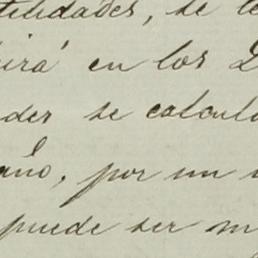 tilidades, se le
irá en los
der se calcula
año, por un
puede ser m